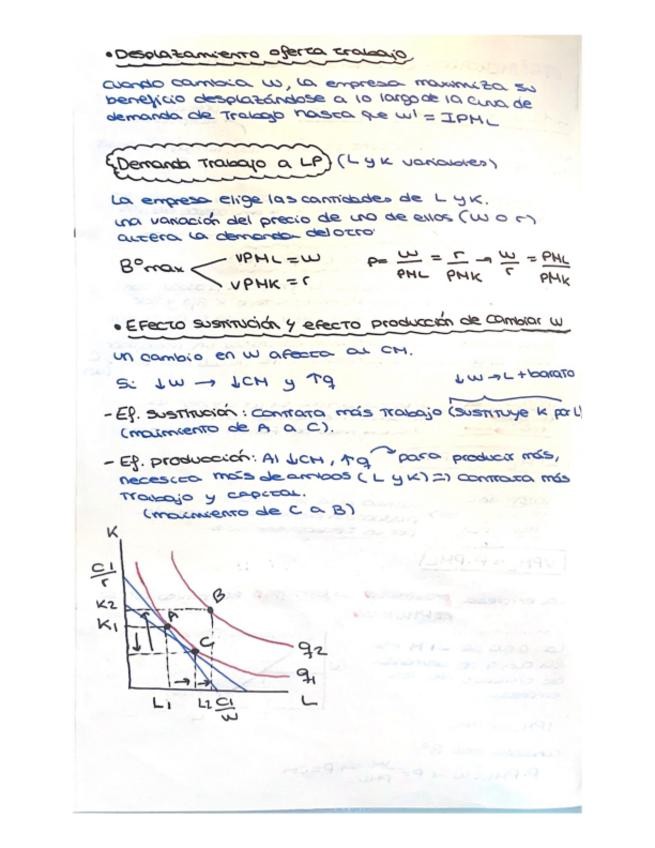 • Desplazamiento oferta trabajo
cuando cambia w, la empresa maximiza su
beneficio desplazándose a lo largo de la curva de
demanda de trabajo hasta que w' = IPML
Demanda Trabajo a LP (L y K variables)
La empresa elige las cantidades de L y K.
una variación del precio de uno de ellos (w o r)
altera la demanda del otro
Bº max < VPML = w
VPMK = r
P = w/PML = r/PMK → w/r = PML/PMK
• Efecto sustitución y efecto producción de cambiar w
un cambio en w afecta al CM.
Si ↓w → ↓CM y ↑q
↓w → L + barato
- Ef. sustitución: contrata más trabajo (sustituye K por L)
(movimiento de A a C).
- Ef. producción: Al ↓CM, ↑q para producir más,
necesita más de ambos (L y K) => contrata más
Trabajo y capital.
(movimiento de C a B)
K
C1/r
K2
K1
A
B
C
q2
q1
L1
L2
C1/w
L